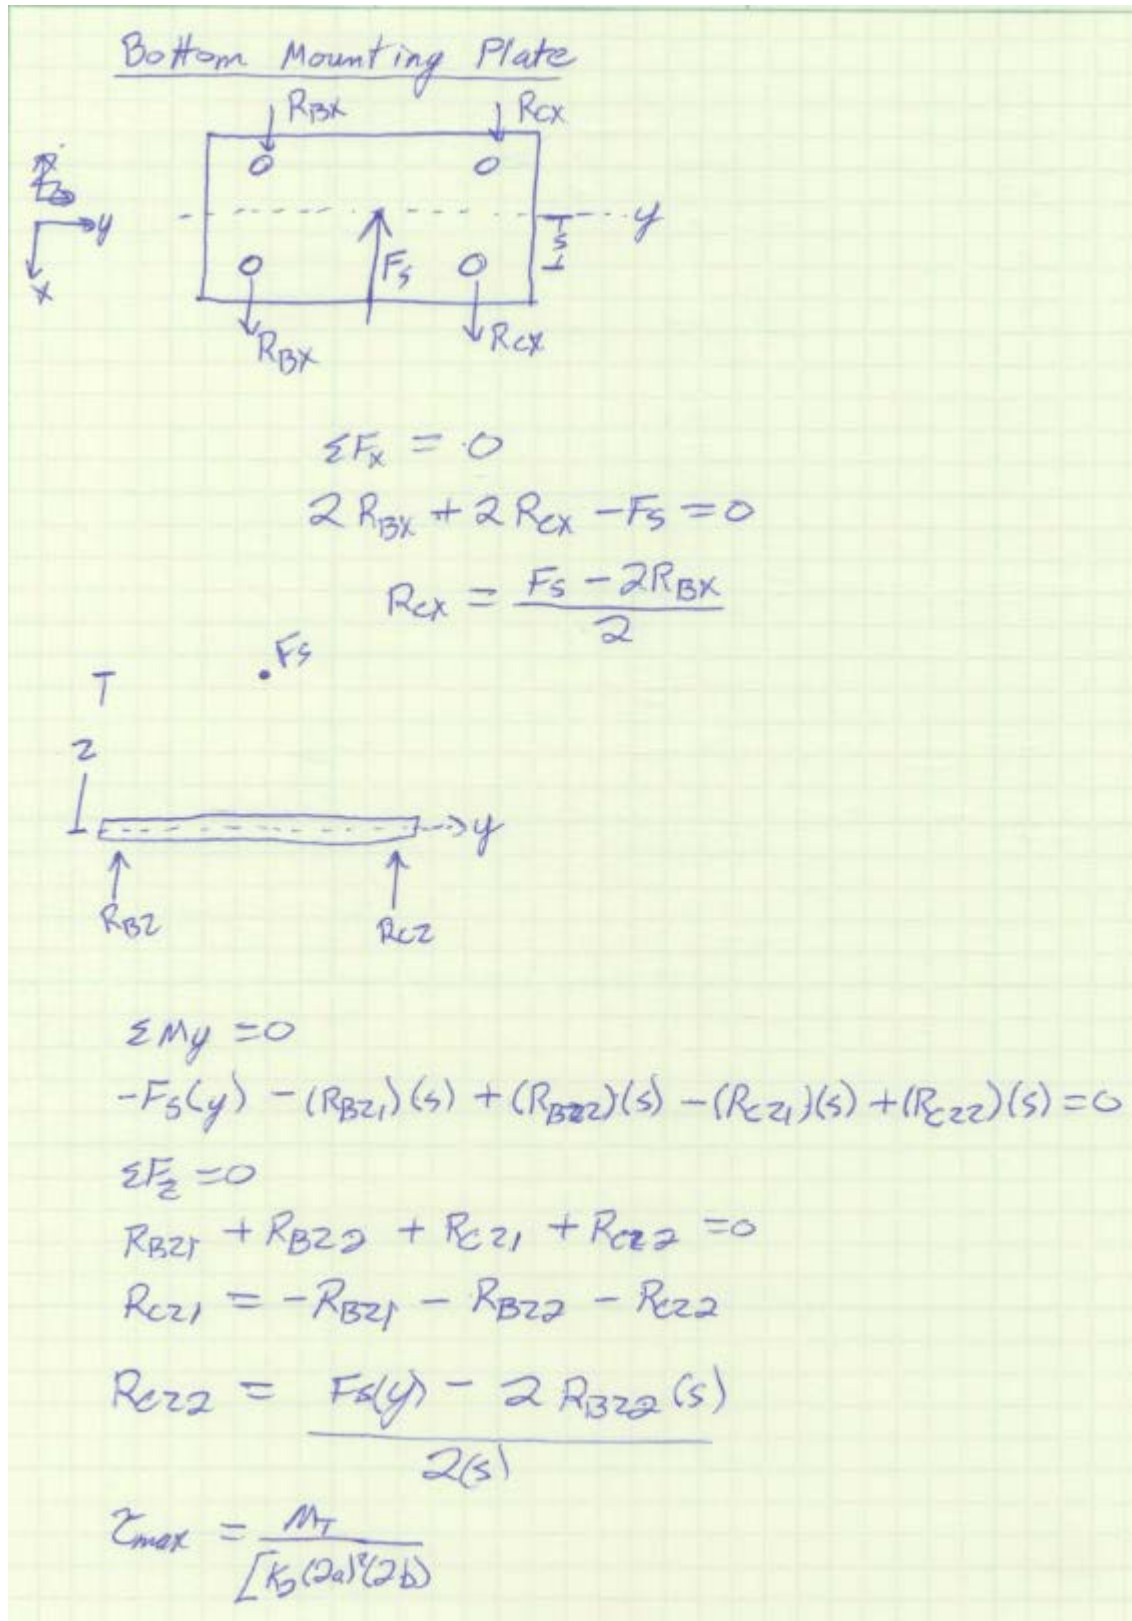 Bottom Mounting Plate
RBX RCX
y y
x
s
FS
RBX RCX
ΣFx = 0
2 RBX + 2 RCX - FS = 0
RCX = FS - 2RBX / 2
FS
T
z
y
RBZ RCZ
ΣMy = 0
-FS(y) - (RBZ1)(s) + (RBZ2)(s) - (RCZ1)(s) + (RCZ2)(s) = 0
ΣFZ = 0
RBZ1 + RBZ2 + RCZ1 + RCZ2 = 0
RCZ1 = -RBZ1 - RBZ2 - RCZ2
RCZ2 = FS(y) - 2 RBZ2 (s) / 2(s)
τmax = MT / [K2(2a)²(2b)